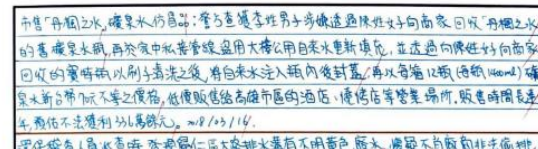 市售「丹楓之水」礦泉水仿冒品:警方查獲李姓男子涉嫌透過陳姓女子向商家回收「丹楓之水」
的舊礦泉水瓶,再於家中私接管線盜用大樓公用自來水重新填充,並透過向陳姓女子向商家
回收的寶特瓶以刷子清洗之後,將自來水注入瓶內後封蓋,再以每箱12瓶(每瓶1400ml)礦
泉水新台幣 元不等之價格,低價販售給高雄市區的酒店、便當店等營業場所,販售時間長達
年,預估不法獲利336萬餘元。 18/03/16.
有不明黃色廢水,懷疑不肖廠商非法偷排,